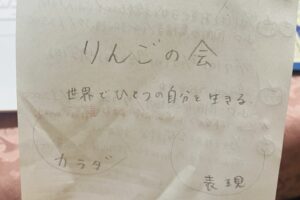 りんごの会
世界でひとつの自分を生きる
カラダ
表現